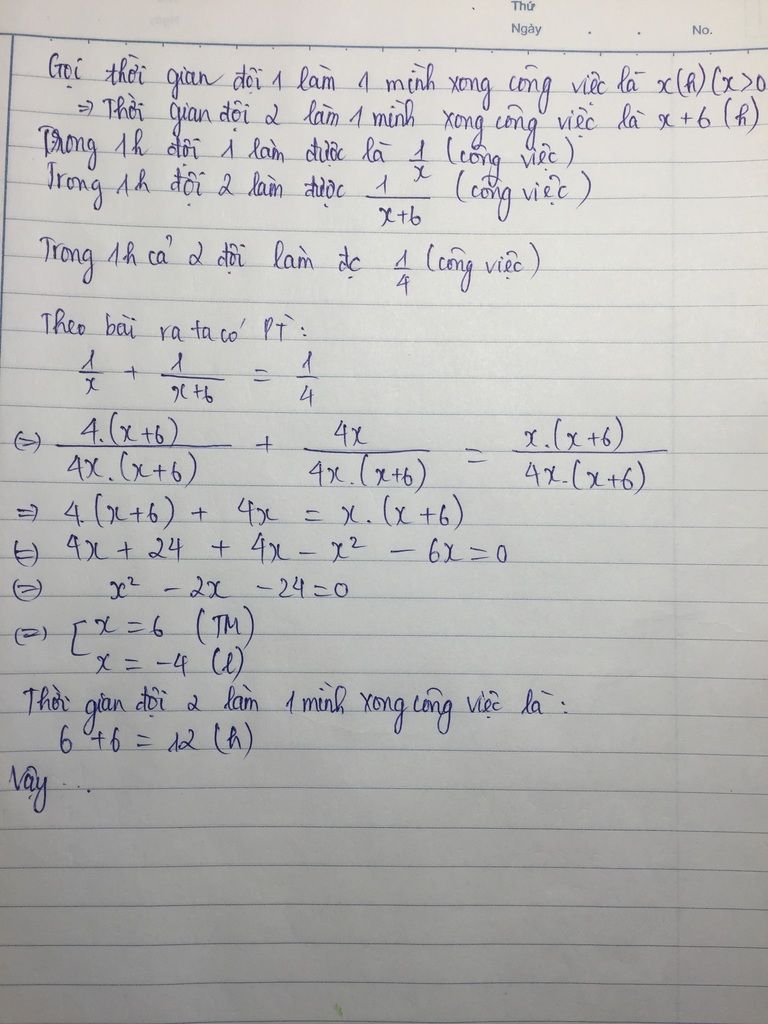 Thứ
Ngày . . No.
Gọi thời gian đội 1 làm 1 mình xong công việc là x(h) (x>0
⇒ Thời gian đội 2 làm 1 mình xong công việc là x+6 (h)
Trong 1h đội 1 làm được là 1/x (công việc)
Trong 1h đội 2 làm được 1/(x+6) (công việc)
Trong 1h cả 2 đội làm đc 1/4 (công việc)
Theo bài ra ta có PT:
1/x + 1/(x+6) = 1/4
(=) 4.(x+6)/4x.(x+6) + 4x/4x.(x+6) = x.(x+6)/4x.(x+6)
⇒ 4.(x+6) + 4x = x.(x+6)
(=) 4x + 24 + 4x - x² - 6x = 0
(=) x² - 2x - 24 = 0
(=) [ x = 6 (TM)
x = -4 (l)
Thời gian đội 2 làm 1 mình xong công việc là:
6 + 6 = 12 (h)
Vậy ...